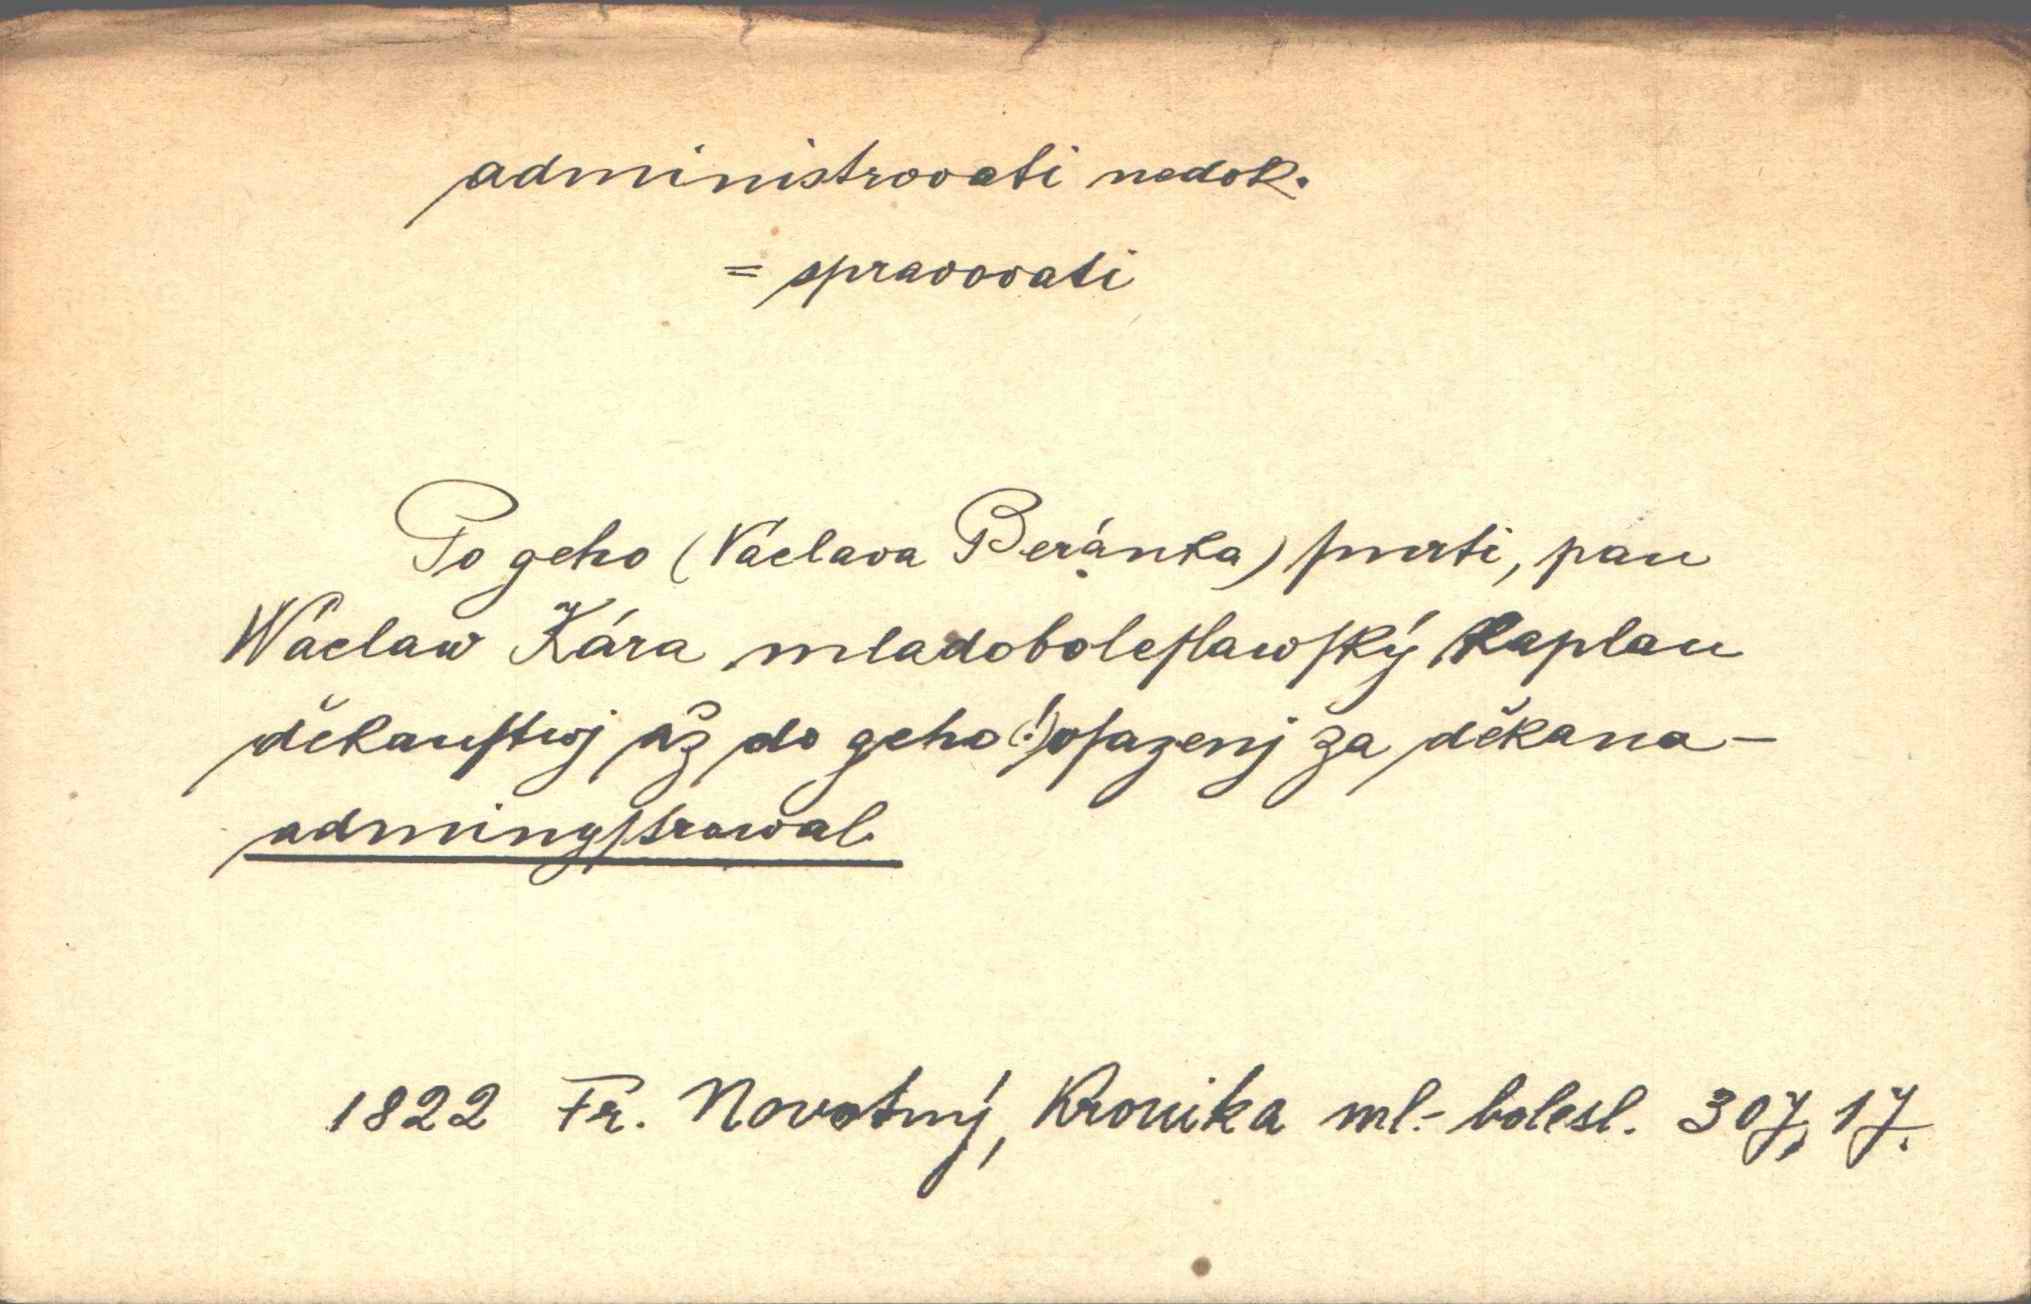 administrovati nedok.
= spravovati
Po geho (Václava Beránka) ſmrti, pan
Wáclaw Kára mladoboleſlawſký kaplan
děkanſtwj až do geho (!) oſazenj za děkana -
adminyſtrowal
1822 Fr. Novotný, Kronika ml.-bolesl. 307, 17.